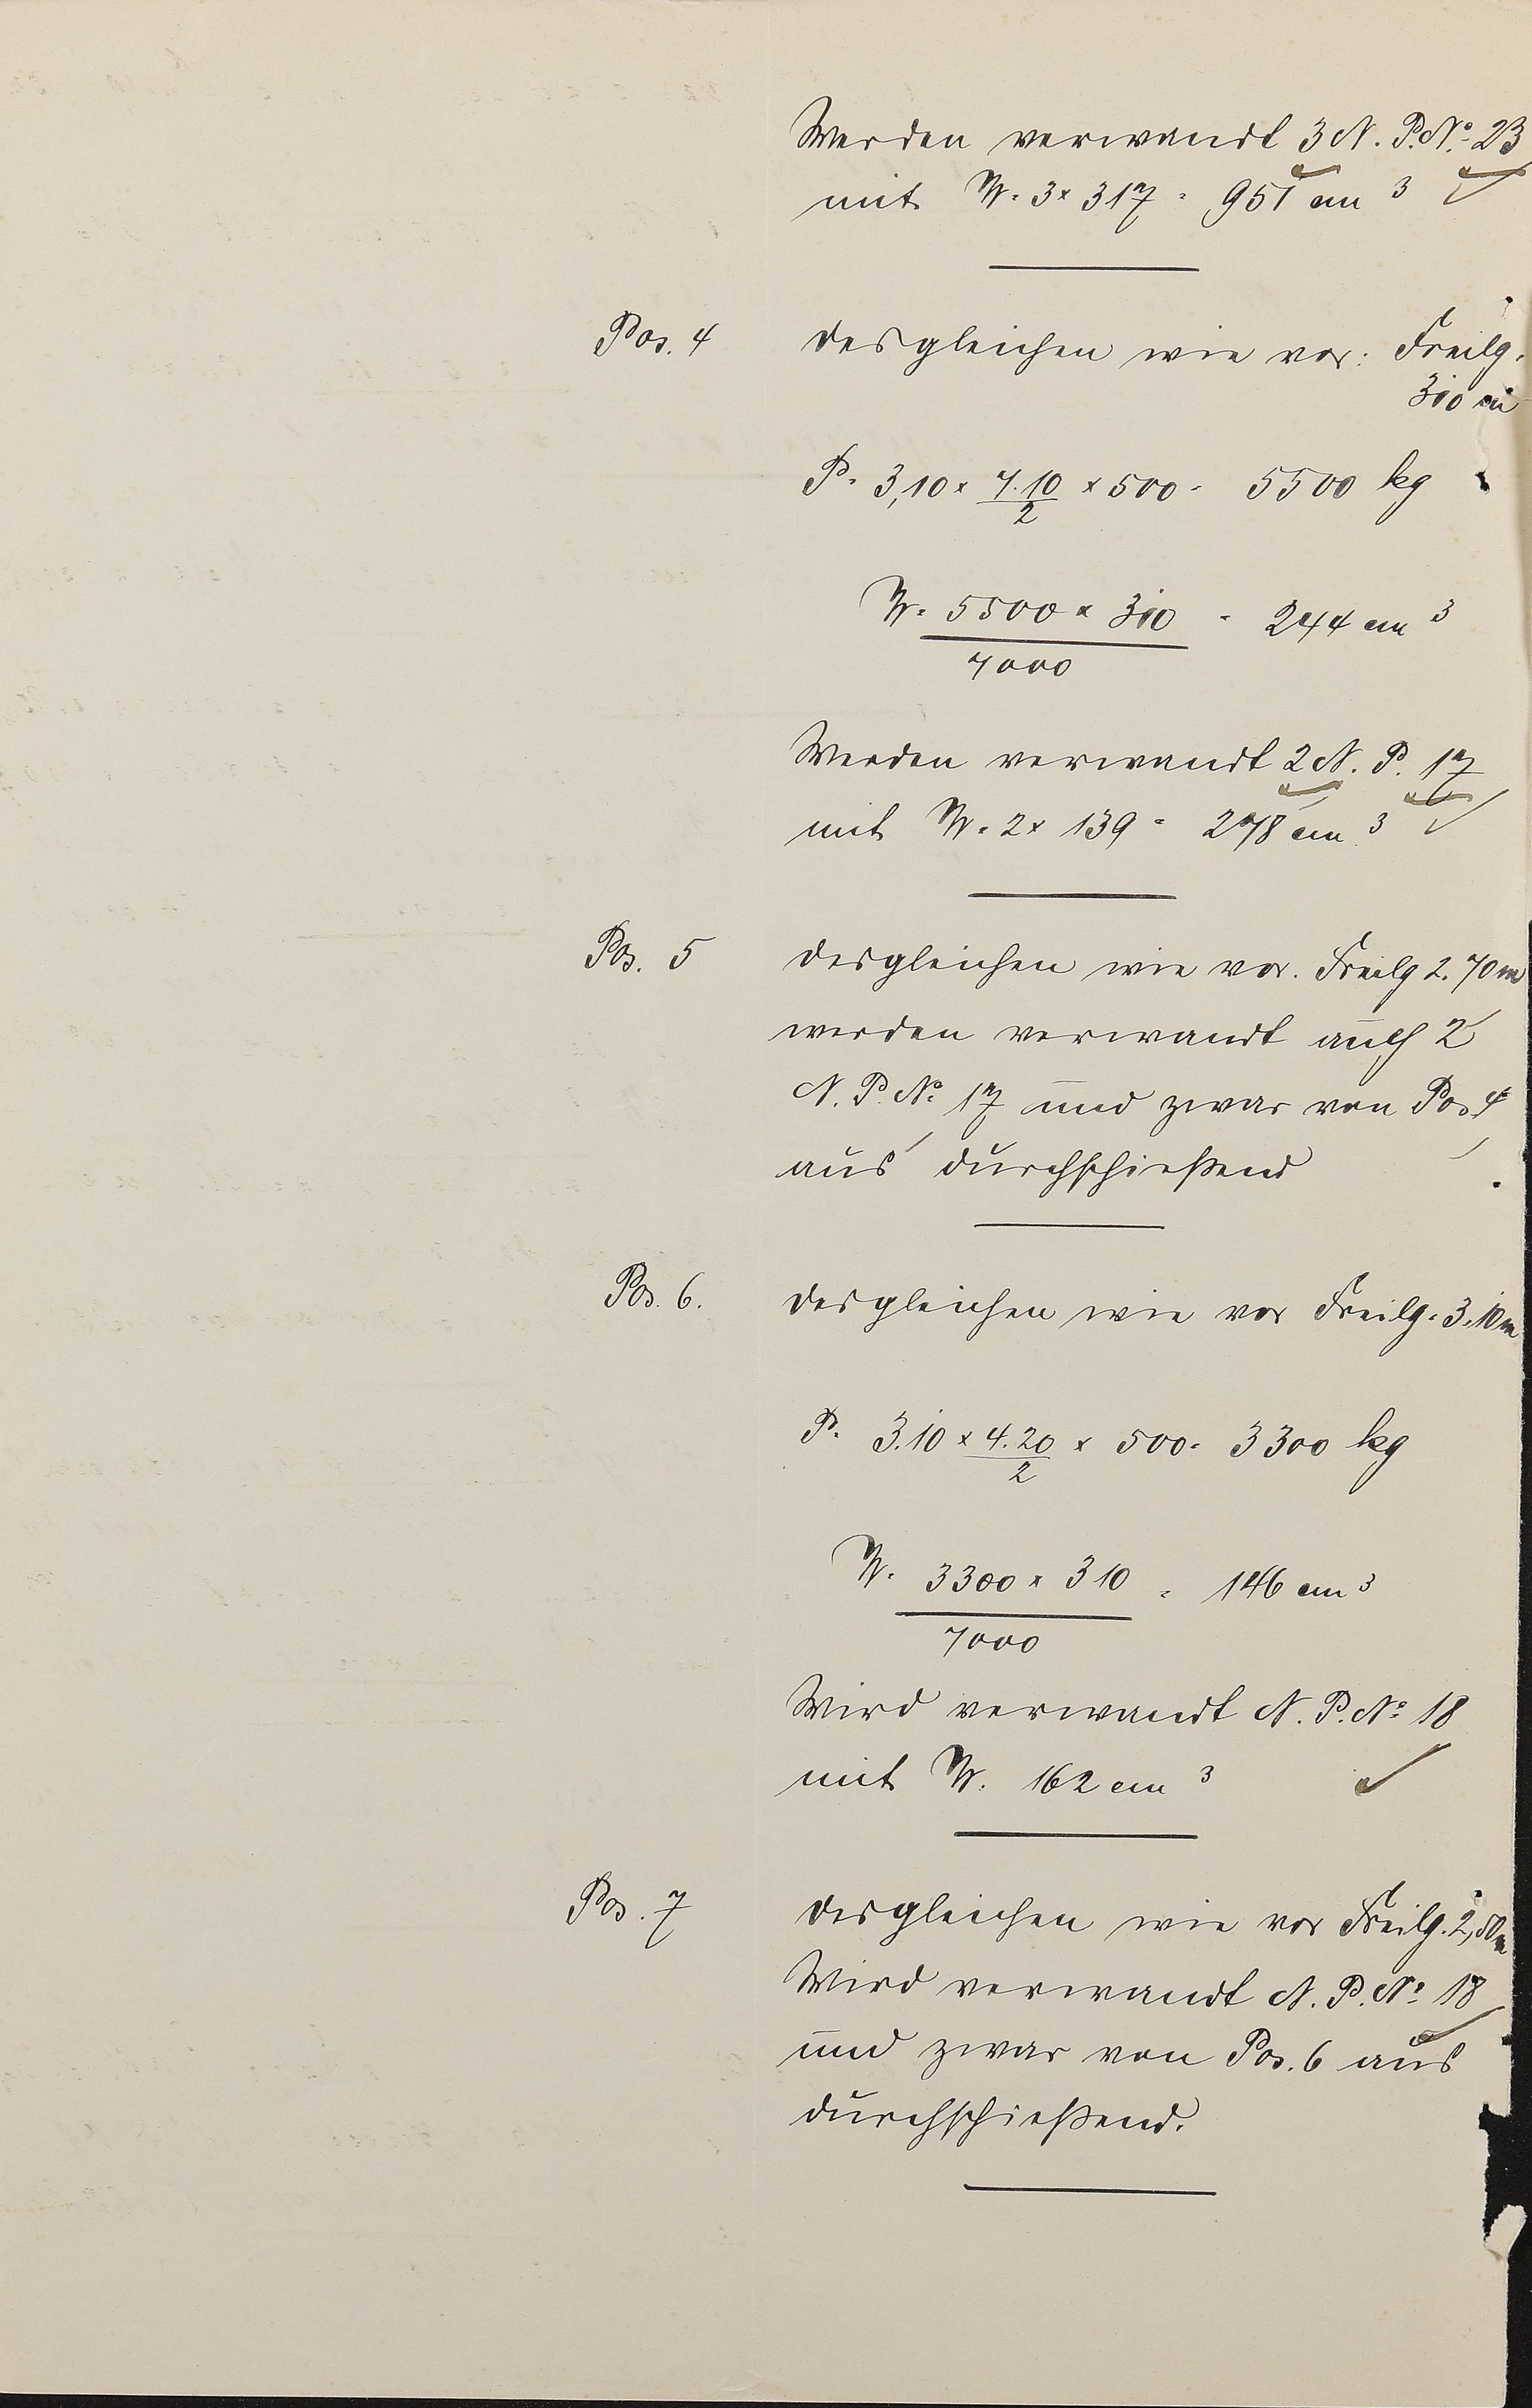 Werden verwandt 3 N. P. No. 23
mit W. = 3 x 317 = 951 cm 3
Pos. 4 desgleichen wie vor: Freilg.
3,10 m
P. = 3,10 x 7.10/2 x 500 = 5500 kg
W. = 5500 x 310 = 244 cm 3
7000
Werden verwandt 2 N. P. 17
mit W. = 2 x 139 = 278 cm 3
Pos. 5 desgleichen wie vor. Freilg 2.70 m
werden verwandt auch 2
N. P. No. 17 und zwar von Pos 4
aus durchschießend
Pos. 6. desgleichen wie vor Freilg. 3.10 m
P. = 3.10 x 4.20/2 x 500 = 3300 kg
W. = 3300 x 310 = 146 cm 3
7000
Wird verwandt N. P. No. 18
mit W. 162 cm 3
Pos. 7 desgleichen wie vor Freilg. 2,80 m
Wird verwandt N. P. No. 18
und zwar von Pos. 6 aus
durchschießend.